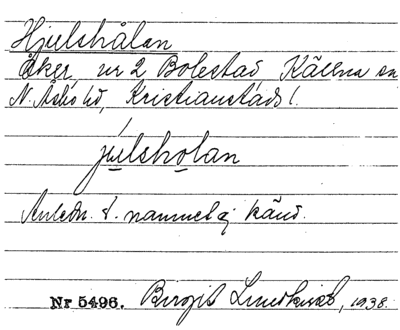 Hjulshålan
Åker, nr 2 Bolestad Källna sn
N. Åsbo hd, Kristianstads l.
julsholan
Anledn. t. namnet ej känd.
Nr 5496. Birgit Lundkvist, 1938.